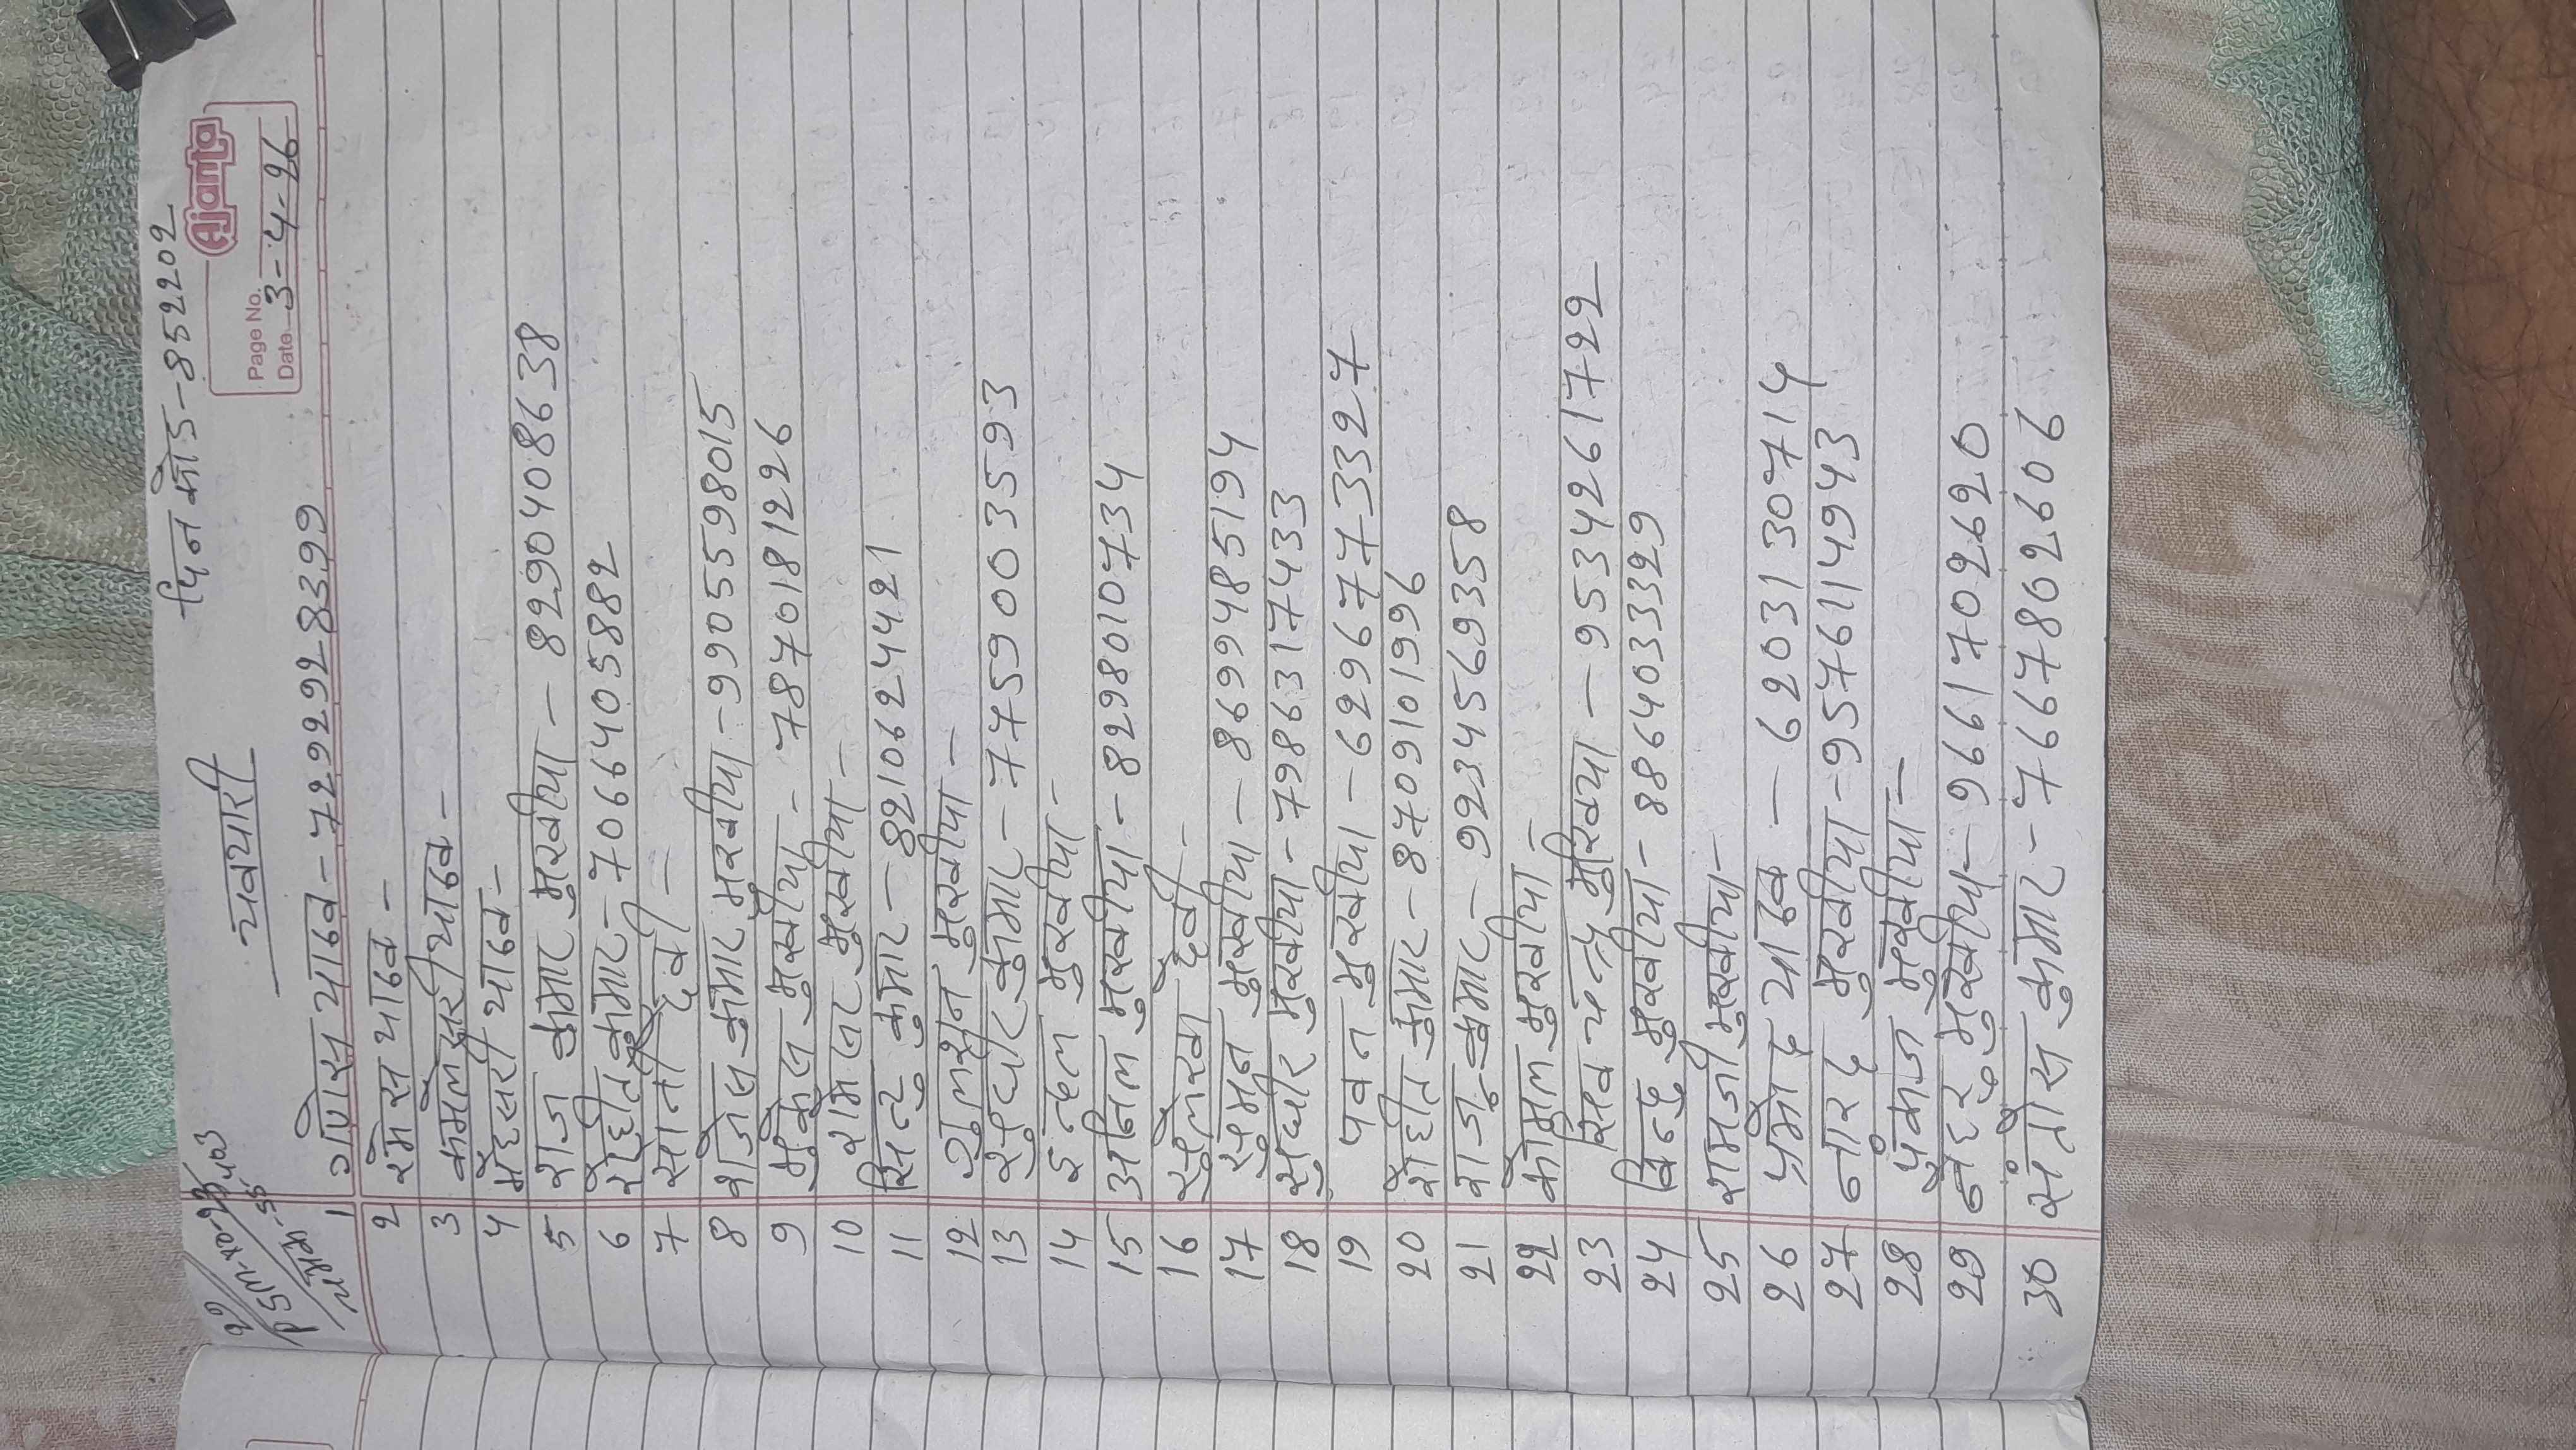 पिन कोड-852202
चवयारी
Ajanta
Page No.
Date 3-4-26
1 गणेस यादव - 7292928399
2 रमेस यादव -
3 कमलेसरी यादव -
4 मेहसरी यादव -
5 राज कुमार मुखीया - 8290408638
6 रोहीत कुमार - 7066405882
7 देवी -
8 राजेस कुमार मुखीया - 9905598015
9 मुकेस मुखीया - 7870181226
10 मुखीया -
11 कुमार - 8210624421
12 गुलशन मुखीया -
13 सुधीर कुमार - 7759003593
14 मुखीया -
15 अनिल मुखीया - 8298010734
16 सुलेखा देवी -
17 सुमन मुखीया - 8699485194
18 सुधीर मुखीया - 7986317433
19 पवन मुखीया - 6296773327
20 रोहीत कुमार - 8709101996
21 राजू कुमार - 9234569358
22 कोमल मुखीया -
23 सिव चन्द्र मुखिया - 9534261722
24 मुखीया - 8864033329
25 रामजी मुखीया -
26 प्रमोद यादव - 6203130714
27 नारद मुखीया - 9576114943
28 पंकज मुखीया -
29 मुखीया - 9661702620
30 संतोस कुमार - 7667802606